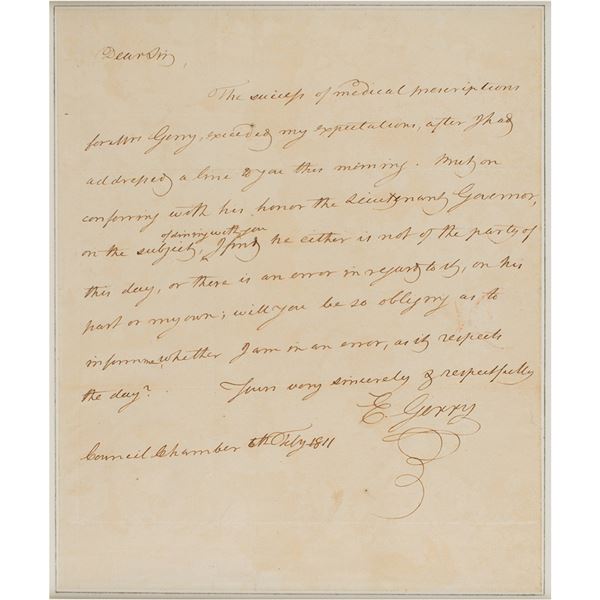 Dear Sir,
The success of medical prescriptions
for Mrs Gerry, exceeded my expectations, after I had
addressed a line to you this morning. But on
conferring with his honor the Lieutenant Governor,
of dining with you
on the subject, I find he either is not of the party of
this day, or there is an error in regard to it, on his
part or my own; will you be so obliging as to
inform me, whether I am in an error, as it respects
the day?
Yours very sincerely & respectfully
E. Gerry
Council Chamber 6th Feby 1811